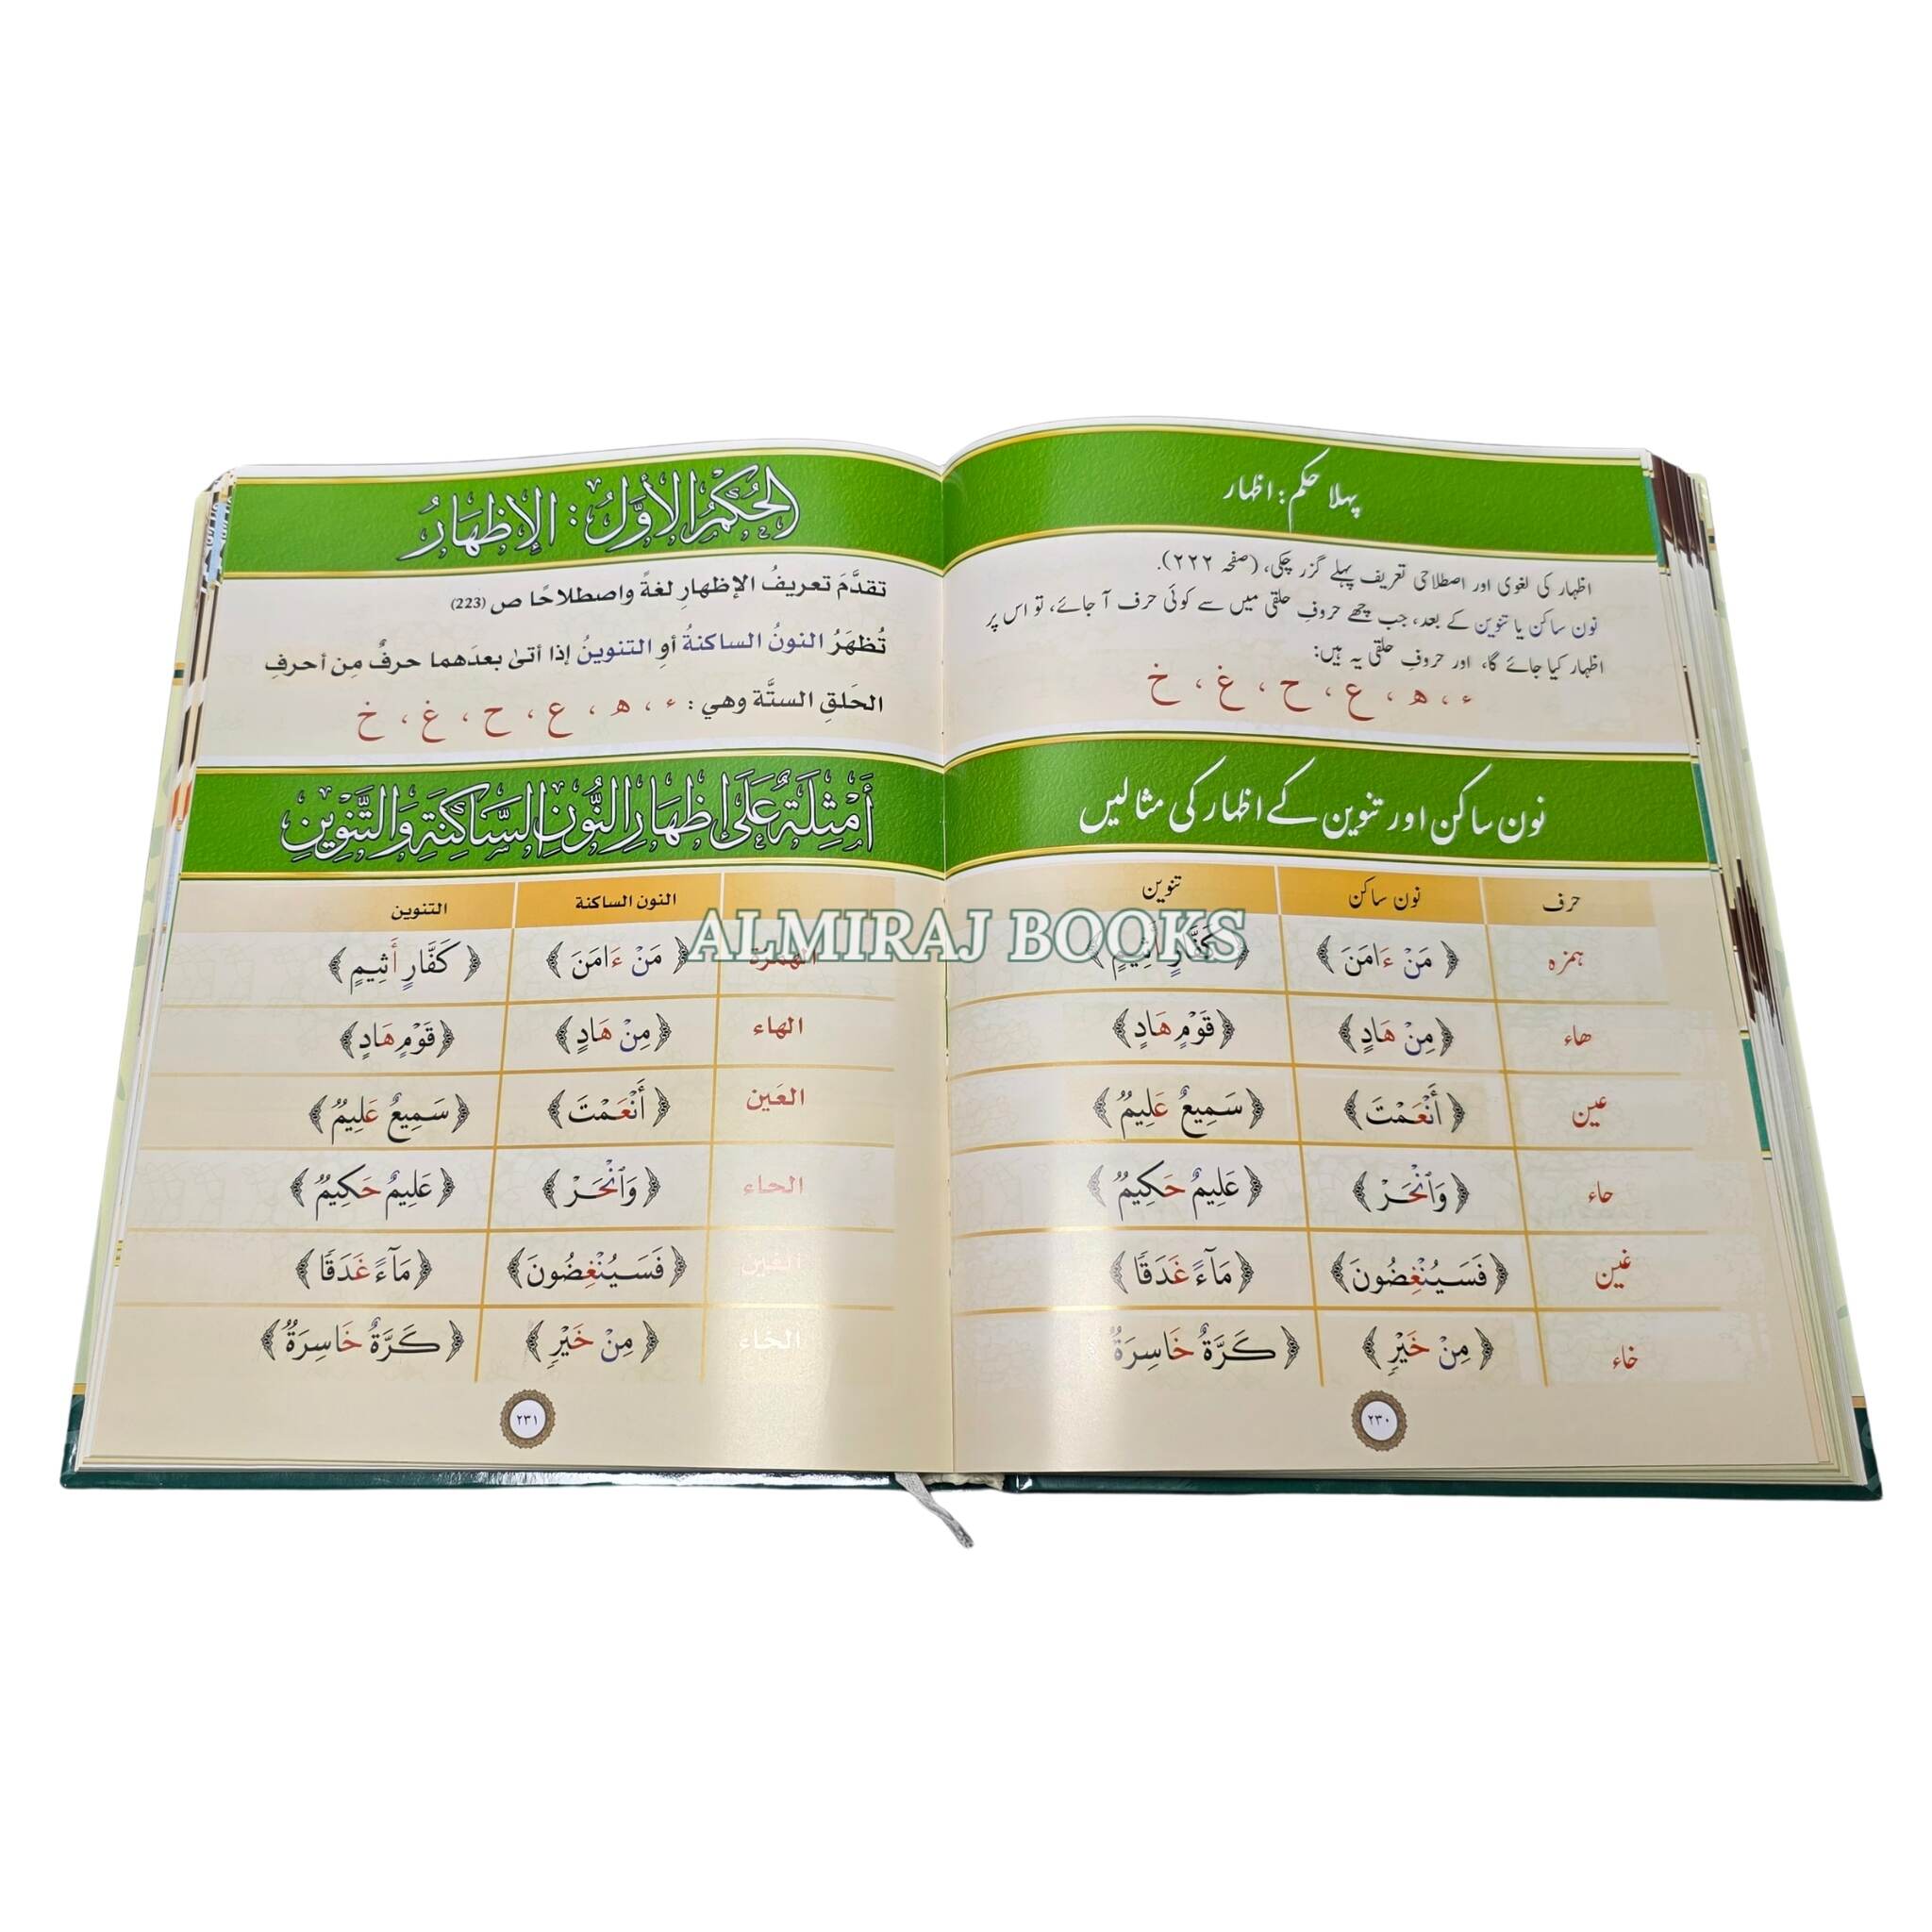 پہلا حکم: اظہار
اظہار کی لغوی اور اصطلاحی تعریف پہلے گزر چکی، (صفحہ ۲۲۲).
نون ساکن یا تنوین کے بعد، جب چھے حروفِ حلقی میں سے کوئی حرف آ جائے، تو اس پر
اظہار کیا جائے گا، اور حروفِ حلقی یہ ہیں:
ء، ھ، ع، ح، غ، خ
نون ساکن اور تنوین کے اظہار کی مثالیں
حرف نون ساکن تنوین
ہمزہ ﴿مَنْ ءَامَنَ﴾ ﴿كَفَّارٍ أَثِيمٍ﴾
ھاء ﴿مِنْ هَادٍ﴾ ﴿قَوْمٍ هَادٍ﴾
عین ﴿أَنْعَمْتَ﴾ ﴿سَمِيعٌ عَلِيمٌ﴾
حاء ﴿وَٱنْحَرْ﴾ ﴿عَلِيمٌ حَكِيمٌ﴾
غین ﴿فَسَيُنْغِضُونَ﴾ ﴿مَآءً غَدَقًا﴾
خاء ﴿مِنْ خَيْرٍ﴾ ﴿كَرَّةٌ خَاسِرَةٌ﴾
٢٣٠
الحُكْمُ الأَوَّلُ: الإِظْهَارُ
تقدَّمَ تعريفُ الإظهارِ لغةً واصطلاحًا ص (223)
تُظهَرُ النونُ الساكنةُ أوِ التنوينُ إذا أتىٰ بعدَهما حرفٌ مِن أحرفِ
الحَلقِ الستَّة وهي: ء، هـ، ع، ح، غ، خ
أَمْثِلَةٌ عَلَى إِظْهَارِ النُّونِ السَّاكِنَةِ وَالتَّنْوِينِ
النون الساكنة التنوين
الهمزة ﴿مَنْ ءَامَنَ﴾ ﴿كَفَّارٍ أَثِيمٍ﴾
الهاء ﴿مِنْ هَادٍ﴾ ﴿قَوْمٍ هَادٍ﴾
العَين ﴿أَنْعَمْتَ﴾ ﴿سَمِيعٌ عَلِيمٌ﴾
الحاء ﴿وَٱنْحَرْ﴾ ﴿عَلِيمٌ حَكِيمٌ﴾
الغين ﴿فَسَيُنْغِضُونَ﴾ ﴿مَآءً غَدَقًا﴾
الخاء ﴿مِنْ خَيْرٍ﴾ ﴿كَرَّةٌ خَاسِرَةٌ﴾
٢٣١
ALMIRAJ BOOKS